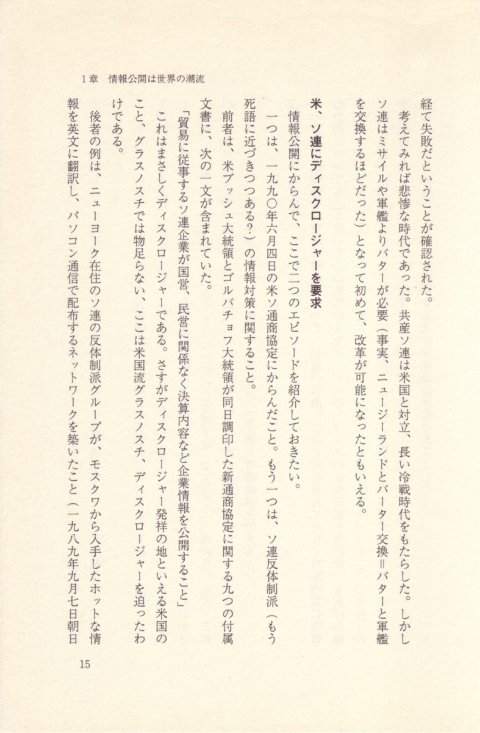 1章　情報公開は世界の潮流
経て失敗だということが確認された。
　考えてみれば悲惨な時代であった。共産ソ連は米国と対立、長い冷戦時代をもたらした。しかし
ソ連はミサイルや軍艦よりバターが必要（事実、ニュージーランドとバーター交換＝バターと軍艦
を交換するほどだった）となって初めて、改革が可能になったともいえる。
米、ソ連にディスクロージャーを要求
　情報公開にからんで、ここで二つのエピソードを紹介しておきたい。
　一つは、一九九〇年六月四日の米ソ通商協定にからんだこと。もう一つは、ソ連反体制派（もう
死語に近づきつつある？）の情報対策に関すること。
　前者は、米ブッシュ大統領とゴルバチョフ大統領が同日調印した新通商協定に関する九つの付属
文書に、次の一文が含まれていた。
　「貿易に従事するソ連企業が国営、民営に関係なく決算内容など企業情報を公開すること」
　これはまさしくディスクロージャーである。さすがディスクロージャー発祥の地といえる米国の
こと、グラスノスチでは物足らない、ここは米国流グラスノスチ、ディスクロージャーを迫ったわ
けである。
　後者の例は、ニューヨーク在住のソ連の反体制派グループが、モスクワから入手したホットな情
報を英文に翻訳し、パソコン通信で配布するネットワークを築いたこと（一九八九年九月七日朝日
15